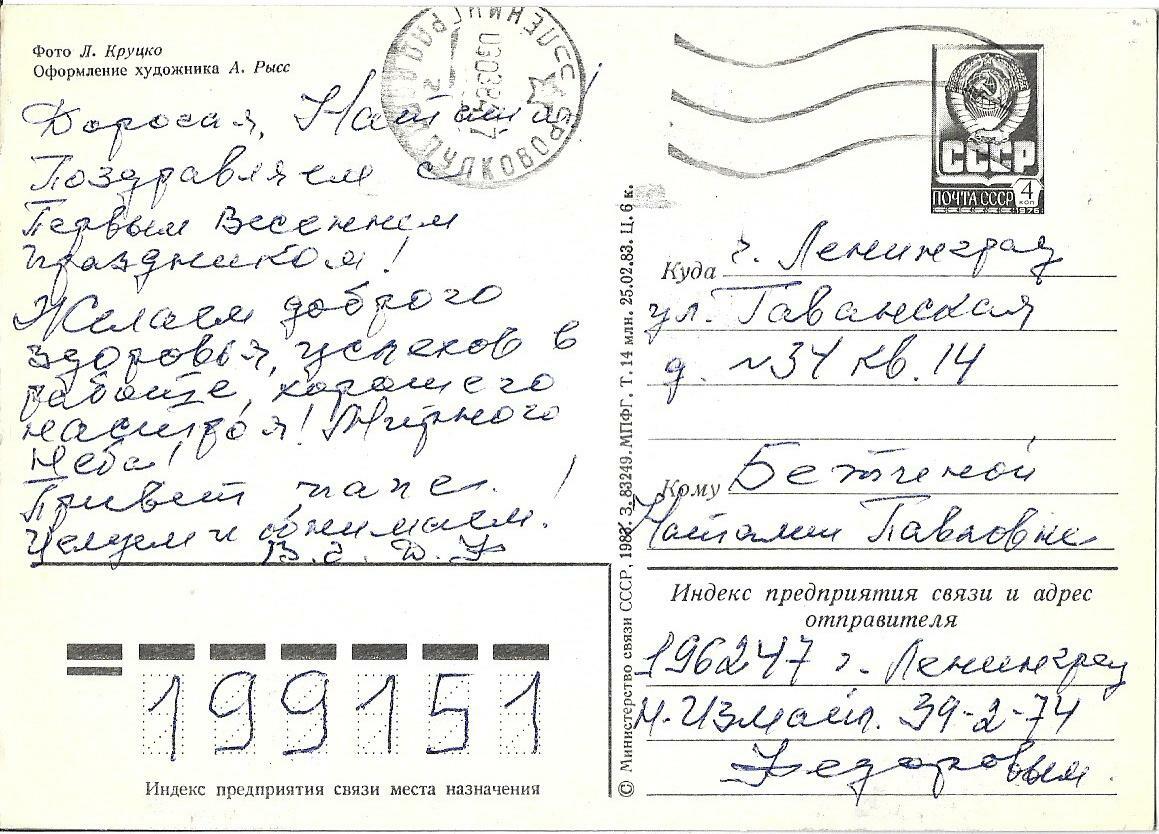 Фото Л. Круцко
Оформление художника А. Рысс
Дорогая, Наташа!
Поздравляем с
Первым Весенним
праздником!
Желаем доброго
здоровья, успехов в
работе, хорошего
настроя! Мирного
Неба!
Привет папе!
Целуем и обнимаем.
ЛЕНИНГРАД
ПУЛКОВО
СССР
ПОЧТА СССР
4 коп
1976
Куда г. Ленинград
ул. Гаванская
д. №34 кв. 14
Кому
Наталии Павловне
Индекс предприятия связи и адрес
отправителя
196247 г. Ленинград
Н-Измайл. 39-2-74
Федоровым
199151
Индекс предприятия связи места назначения
© Министерство связи СССР, 1983. З. 83249. МПФГ. Т. 14 млн. 25.02.83. Ц. 6 к.